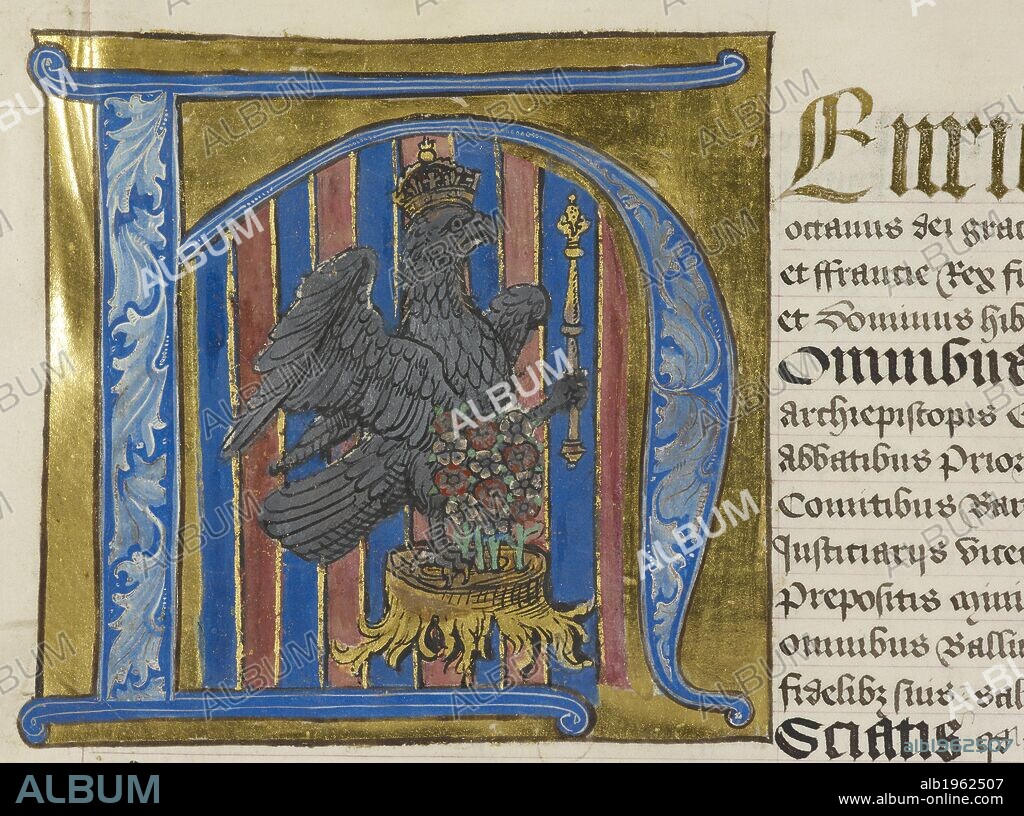 H
Enri
octauus dei grac
et ffrancie Rex fi
et Dominus hib
Omnibus
archiepiscopis E
Abbatibus Prior
Comitibus Bar
Justiciarijs vice
Prepositis mini
omnibus Balli
fidelibz suis sal
Sciatis
ALBUM
alb1962507
alb1962507
www.album-online.com